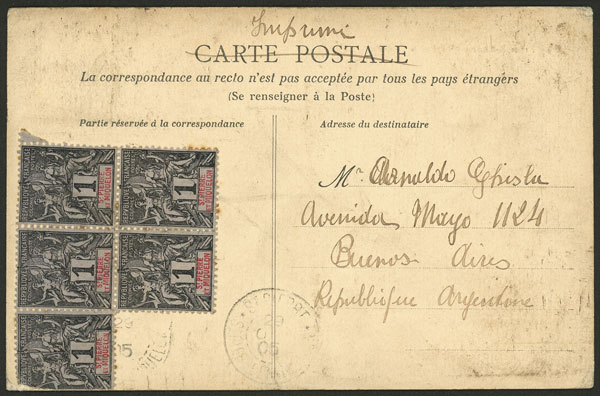 Imprimé
CARTE POSTALE
La correspondance au recto n'est pas acceptée par tous les pays étrangers
(Se renseigner à la Poste)
Partie réservée à la correspondance
Adresse du destinataire
Mr Arnaldo
Avenida Mayo 1124
Buenos Aires
Republique Argentine
RÉPUBLIQUE FRANÇAISE
1
ST PIERRE
ET MIQUELON
RÉPUBLIQUE FRANÇAISE
1
ST PIERRE
ET MIQUELON
RÉPUBLIQUE FRANÇAISE
1
ST PIERRE
ET MIQUELON
RÉPUBLIQUE FRANÇAISE
1
ST PIERRE
ET MIQUELON
RÉPUBLIQUE FRANÇAISE
1
ST PIERRE
ET MIQUELON
29
05
29